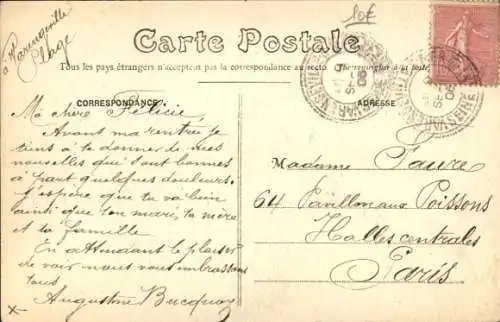 à Varengeville
Plage
10€
Carte Postale
Tous les pays étrangers n'acceptent pas la correspondance au recto. (Se renseigner à la poste
CORRESPONDANCE
ADRESSE
Ma chère Félicie,
Avant ma rentrée je
tiens à te donner de mes
nouvelles qui sont bonnes
à part quelques douleurs.
J'espère que tu va bien
ainsi que ton mari, ta mère
et ta famille
En attendant le plaisir
de voir nous vous embrassons
tous
Augustine Bucquoy
Madame Faure
64 Pavillon aux Poissons
Halles centrales
Paris